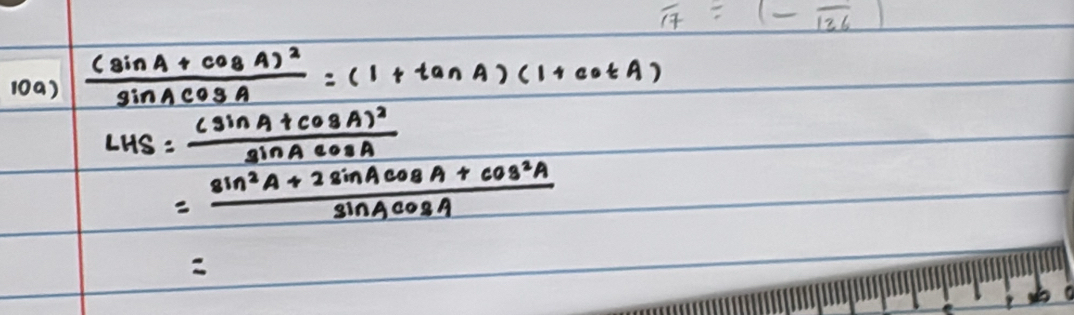 17 = (- 136)
10a) (sin A + cos A)² / sin A cos A = (1 + tan A)(1 + cot A)
LHS = (sin A + cos A)² / sin A cos A
= sin² A + 2 sin A cos A + cos² A / sin A cos A
=